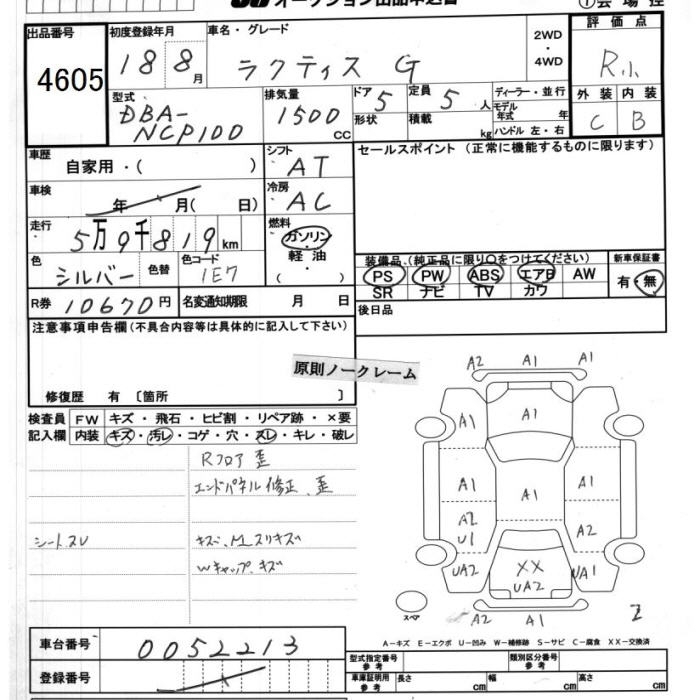 オークション出品申込書
出品番号 4605
初度登録年月 18 8月
車名・グレード ラクティス G
2WD・4WD
評価点 R小
外装 C 内装 B
型式 DBA-NCP100
排気量 1500 CC
ドア 5 形状
定員 5 人 積載 kg
ディーラー・並行
モデル年式 年
ハンドル 左・右
車歴 自家用・( )
シフト AT
セールスポイント (正常に機能するものに限ります)
車検 年 月( 日)
冷房 AC
走行 5万9千819km
燃料 ガソリン・軽油・( )
色 シルバー 色替
色コード 1E7
装備品 (純正品に限り○をつけてください)
PS PW ABS エアB AW
SR ナビ TV カワ
新車保証書 有・無
R券 10670円
名変通知期限 月 日
後日品
注意事項申告欄(不具合内容等は具体的に記入して下さい)
原則ノークレーム
修復歴 有〔箇所 〕
検査員記入欄
FW キズ・飛石・ヒビ割・リペア跡・×要
内装 キズ・汚レ・コゲ・穴・スレ・キレ・破レ
Rフロア歪
エンドパネル修正、歪
シートスレ
キズ、M,スリキズ
Wキャップ、キズ
A2 A1 A1
A1 A1
A1 A1 A1
A2 U1 A2
UA2 XX UA2 UA1
A2 A1
スペア
A-キズ E-エクボ U-凹み W-補修跡 S-サビ C-腐食 XX-交換済
車台番号 0052213
登録番号
型式指定番号 参考
類別区分番号 参考
車庫証明用参考 長さ cm 幅 cm 高さ cm